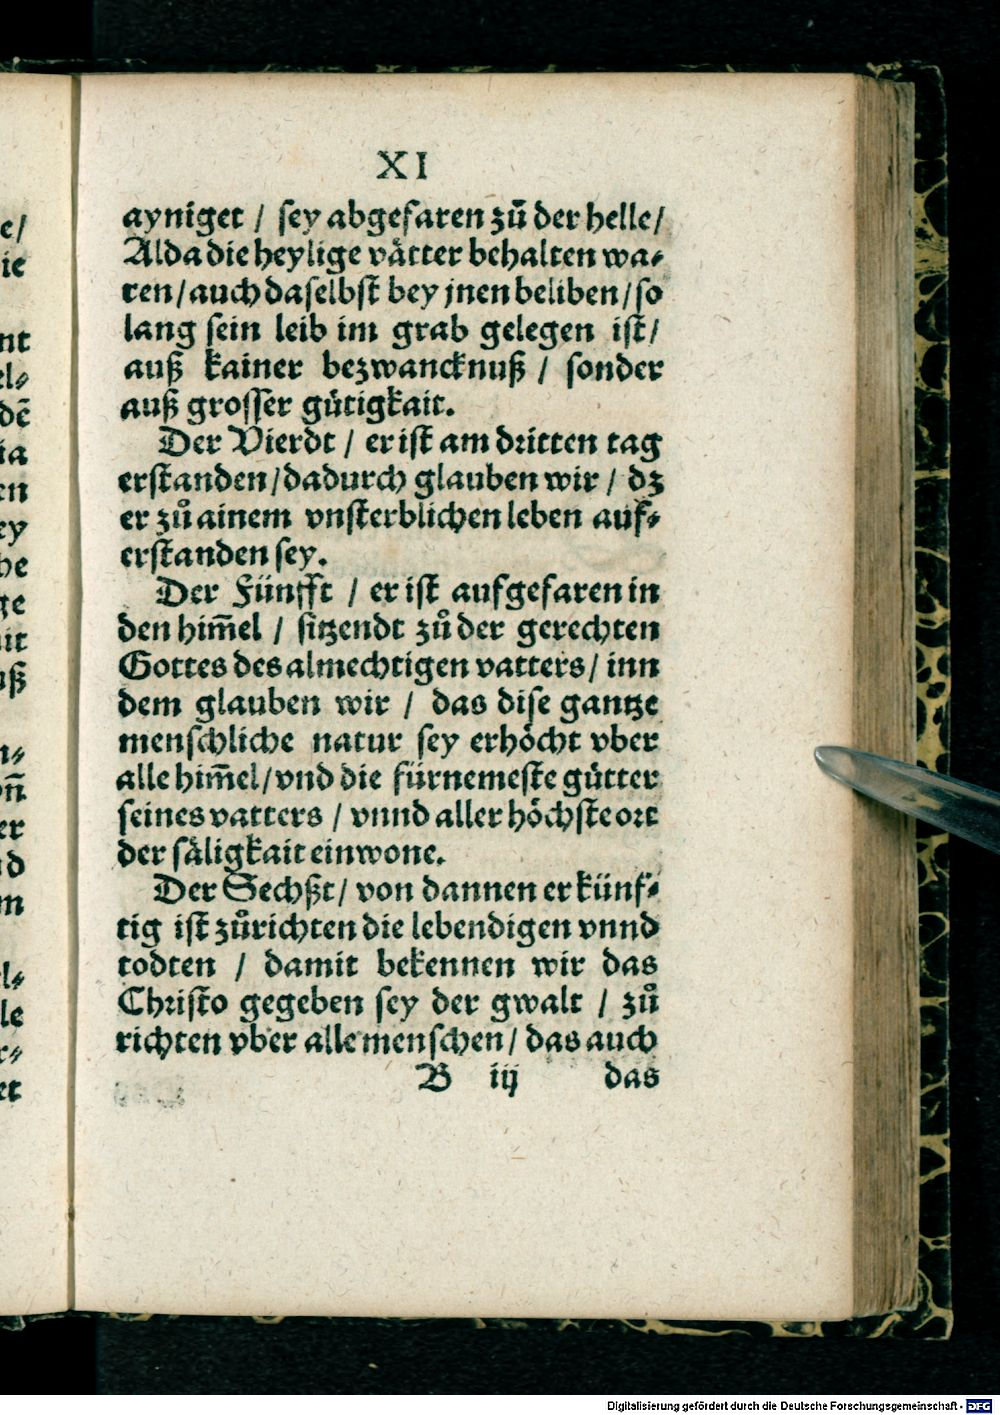 XI
ayniget / sey abgefaren zů der helle/
Alda die heylige våtter behalten wa⸗
ren/auch daselbst bey jnen beliben/so
lang sein leib im grab gelegen ist/
auß kainer bezwancknuß / sonder
auß grosser gůtigkait.
Der Vierdt / er ist am dritten tag
erstanden/dadurch glauben wir / dz
er zů ainem vnsterblichen leben auf⸗
erstanden sey.
Der Fünfft / er ist aufgefaren in
den him̄el / sitzendt zů der gerechten
Gottes des almechtigen vatters/ inn
dem glauben wir / das dise gantze
menschliche natur sey erhöcht vber
alle him̄el/vnd die fürnemeste gütter
seines vatters / vnnd aller höchste ort
der såligkait einwone.
Der Sechßt/ von dannen er künf⸗
tig ist zůrichten die lebendigen vnnd
todten / damit bekennen wir das
Christo gegeben sey der gwalt / zů
richten vber alle menschen/ das auch
B iij das
e/
ie
nt
el⸗
dē
ia
en
ey
he
ge
it
uß
n⸗
on̄
er
nd
m
el⸗
le
r⸗
et
Digitalisierung gefördert durch die Deutsche Forschungsgemeinschaft - DFG